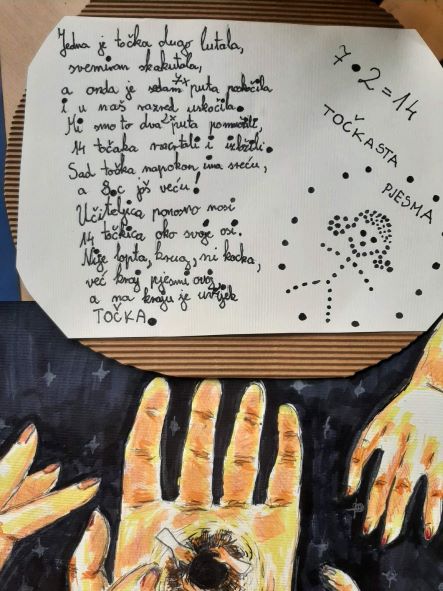 Jedna je točka dugo lutala,
svemiram skakutala,
a onda je sedam 7x puta poskočila
i u naš razred uskočila.
Mi smo to dva 2x puta pomnožili,
14 točaka nacrtali i izložili.
Sad točka napokon ima sreću,
a 8.c još veću!
Učiteljica ponosno nosi
14 točkica oko svoje osi.
Nije lopta, krug, ni kocka,
već kraj pjesmi ovoj
a na kraju je uvijek
TOČKA.
7•2=14
TOČKASTA
PJESMA